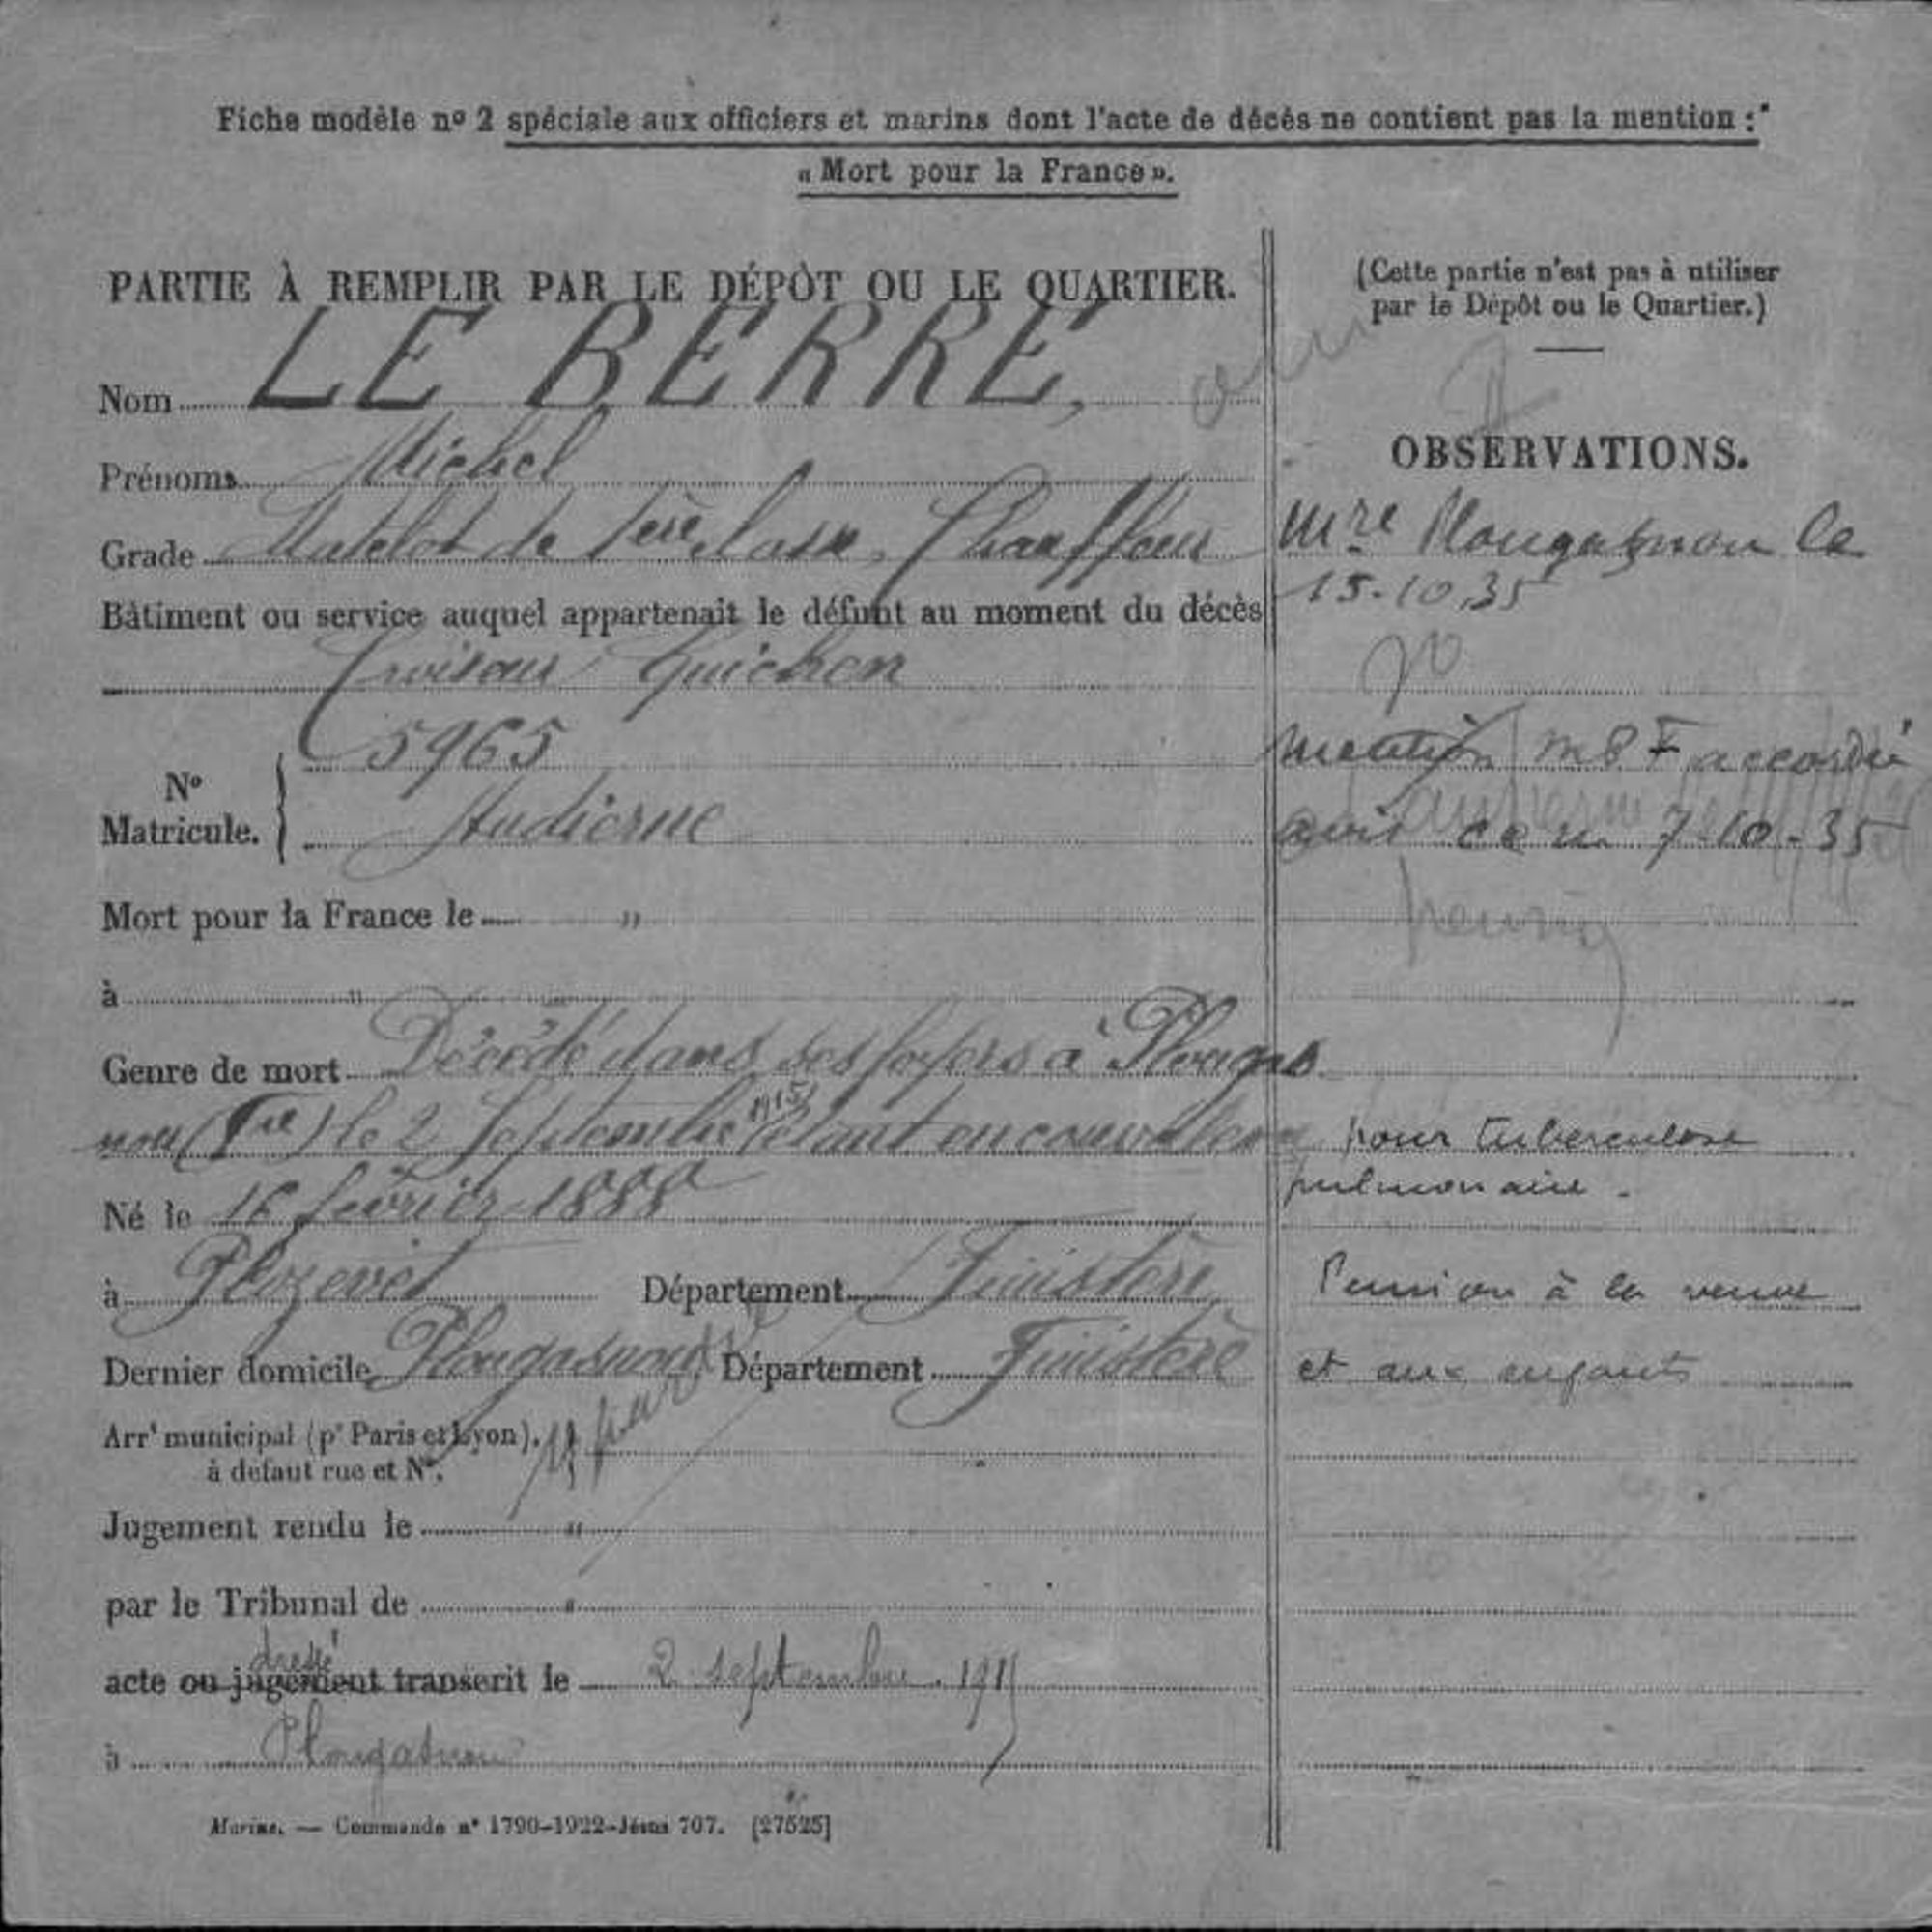 Fiche modèle nº 2 spéciale aux officiers et marins dont l'acte de décès ne contient pas la mention :
« Mort pour la France ».
PARTIE À REMPLIR PAR LE DÉPÔT OU LE QUARTIER.
Nom LE BERRE,
Prénoms Michel
Grade Matelot de 1ère classe, Chauffeur
Bâtiment ou service auquel appartenait le défunt au moment du décès
Croiseur Guichen
5965
Nº
Matricule.
Audierne
Mort pour la France le "
à "
Genre de mort Décédé dans ses foyers à Plougas
nou (Fre) le 2 Septembre 1915 étant en convalescence
Né le 16 février 1888
à Plozévet Département Finistère
Dernier domicile Plougasnou Département Finistère
Arrt municipal (pr Paris et Lyon).
à defaut rue et Nº.
Jugement rendu le "
par le Tribunal de "
dressé
acte ou jugement transcrit le 2 septembre 1915
à Plougasnou
Marine. — Commande nº 1790-1922-Jésus 707. [27525]
(Cette partie n'est pas à utiliser
par le Dépôt ou le Quartier.)
OBSERVATIONS.
Mre Plougasnou le
15-10.35
mention MPF accordée
avis 7-10-35
pour tuberculose
pulmonaire.
Pension à la veuve
et aux enfants